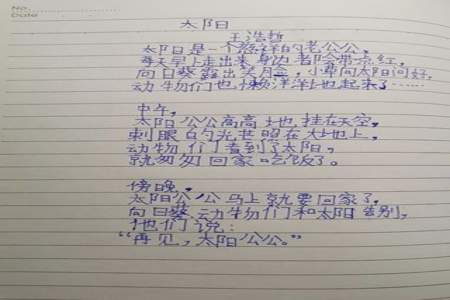 No.
Date
太阳
王浩哲
太阳是一个慈祥的老公公,
每天早上走出来身边都会带点红,
向日葵露出笑脸,小草向太阳问好,
动物们也懒洋洋地起来了……
中午,
太阳公公高高地挂在天空,
刺眼的光芒照在大地上,
动物们看到了太阳,
就匆匆回家吃饭了。
傍晚,
太阳公公马上就要回家了,
向日葵、动物们和太阳告别,
他们说:
“再见,太阳公公。”